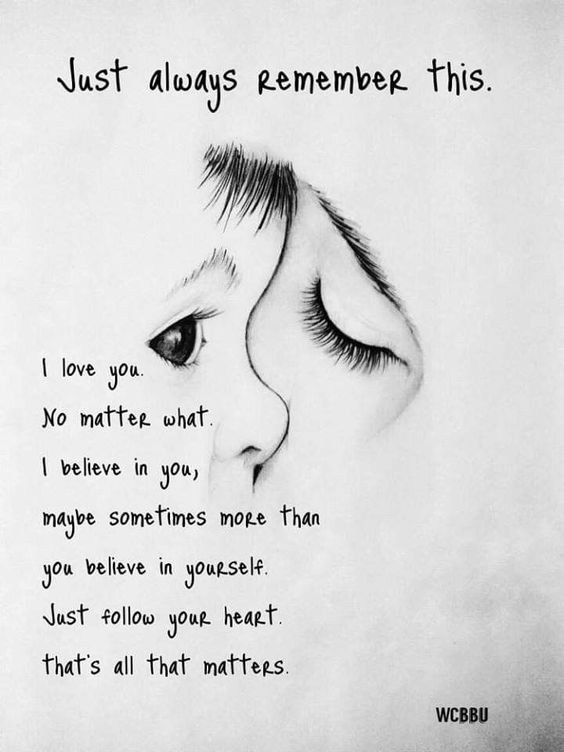 Just always remember this.
I love you.
No matter what.
I believe in you,
maybe sometimes more than
you believe in yourself.
Just follow your heart.
that's all that matters.
WCBBU